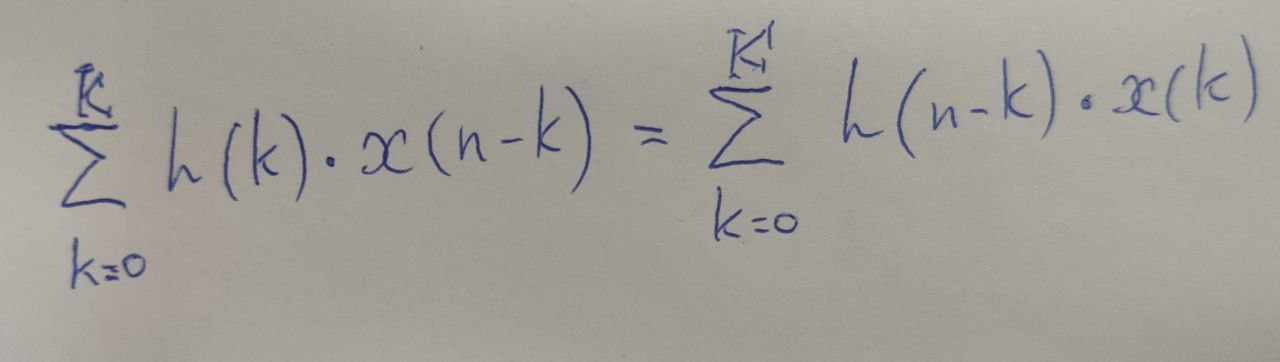 \sum_{k=0}^{K} h(k) \cdot x(n-k) = \sum_{k=0}^{K'} h(n-k) \cdot x(k)